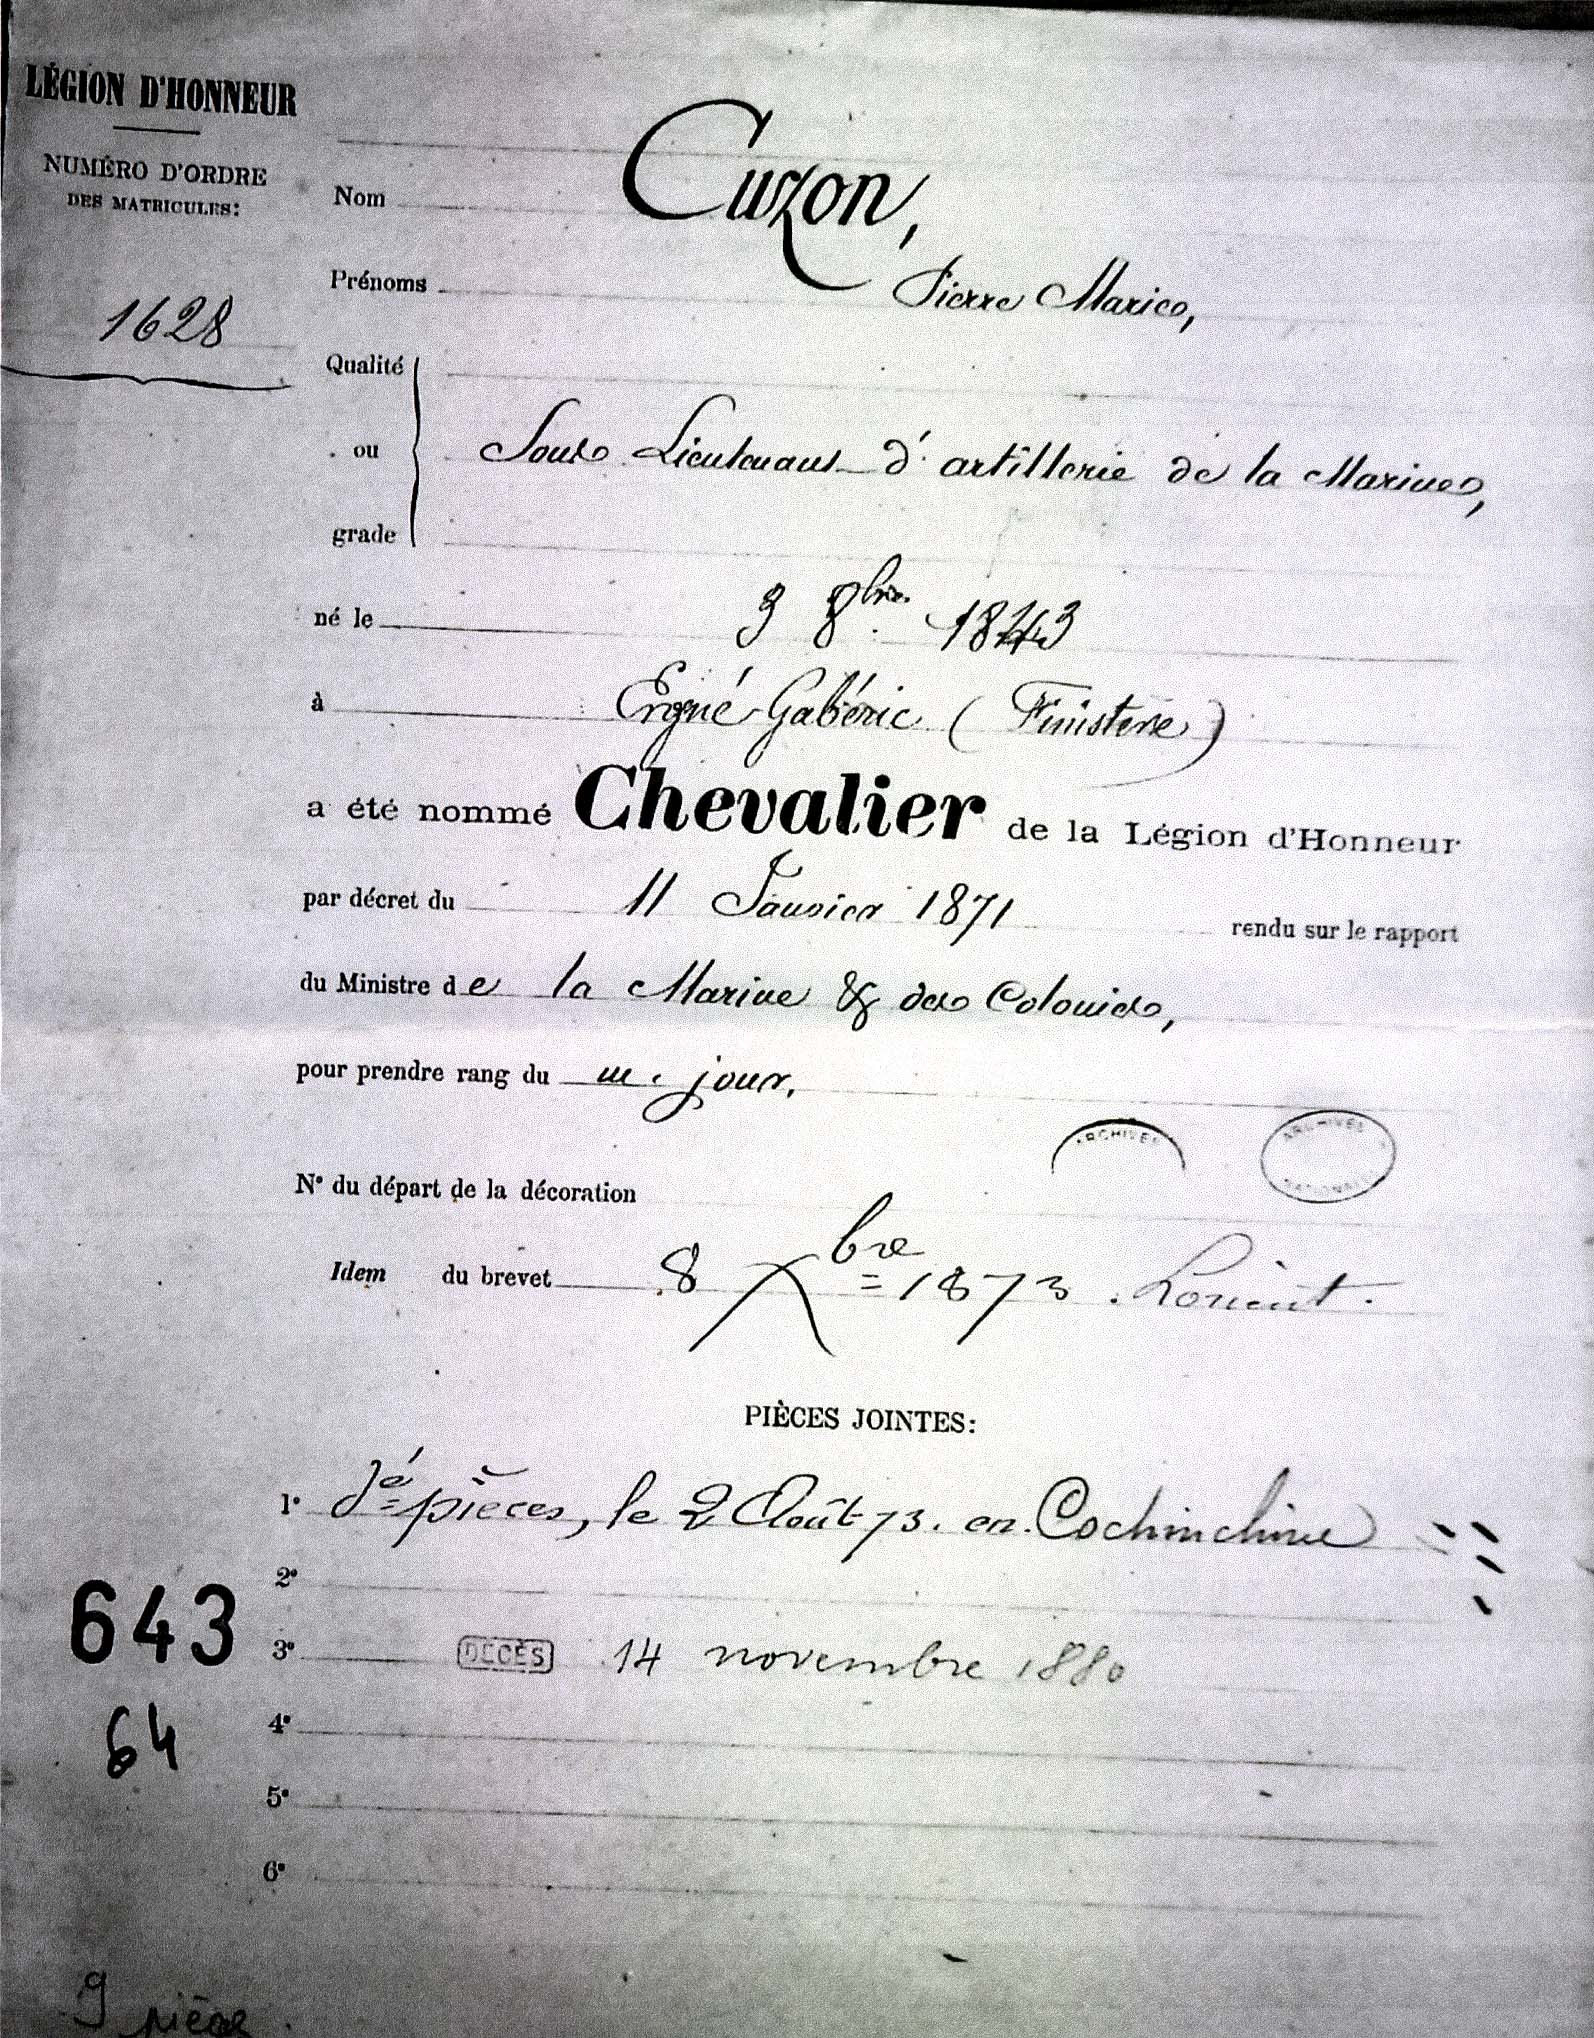 LÉGION D'HONNEUR
NUMÉRO D'ORDRE
DES MATRICULES:
1628
Nom Cuzon,
Prénoms Pierre Marie,
Qualité
ou Sous Lieutenant d'artillerie de la Marine,
grade
né le 9 8bre 1843
à Ergué-Gabéric (Finistère)
a été nommé Chevalier de la Légion d'Honneur
par décret du 11 Janvier 1871 rendu sur le rapport
du Ministre de la Marine & des Colonies,
pour prendre rang du m. jour.
ARCHIVES
ARCHIVES NATIONALES
N° du départ de la décoration
Idem du brevet 8 Xbre = 1873. Lorient.
PIÈCES JOINTES:
1° pièces, le 2 Août 73. en Cochinchine
2°
643
3° DÉCÈS 14 novembre 1880
64
4°
5°
6°
9 pièces